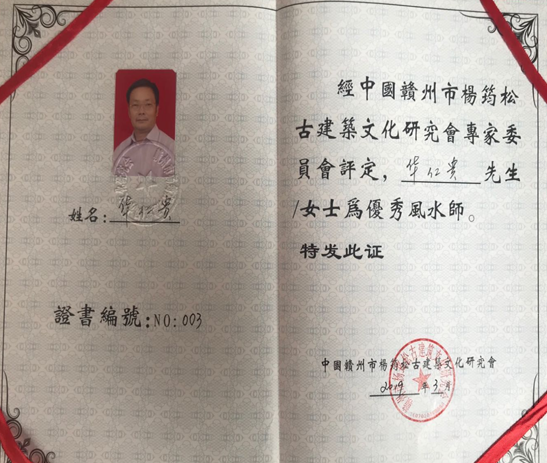 姓名：华仁贵
證書編號：NO：003
經中國贛州市楊筠松
古建築文化研究會專家委
員會評定，华仁贵先生
/女士爲優秀風水師。
特发此证
中國贛州市楊筠松古建築文化研究會
2019年3月